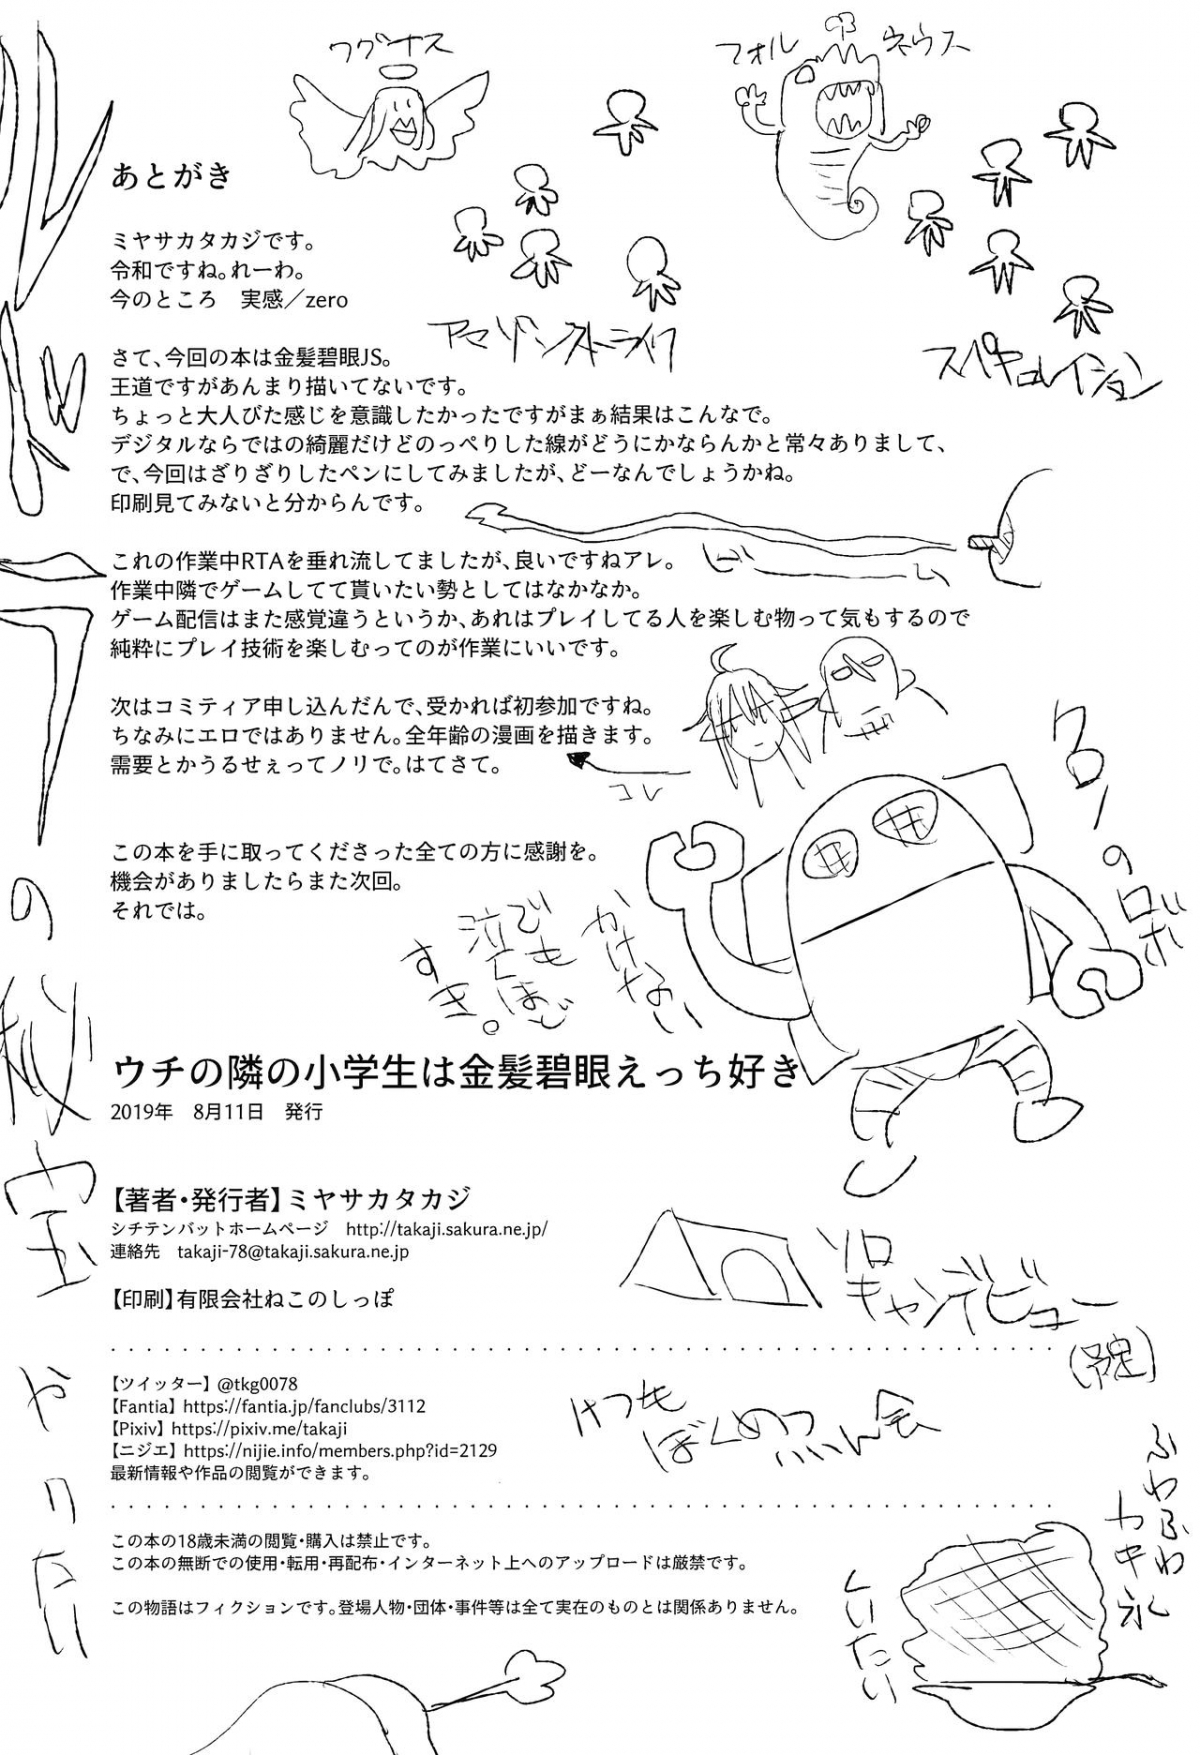 ワグナス
フォルネウス
あとがき
ミヤサカタカジです。
令和ですね。れーわ。
今のところ　実感／zero
アマゾンストライク
スペキュレイション
さて、今回の本は金髪碧眼JS。
王道ですがあんまり描いてないです。
ちょっと大人びた感じを意識したかったですがまぁ結果はこんなで。
デジタルならではの綺麗だけどのっぺりした線がどうにかならんかと常々ありまして、
で、今回はざりざりしたペンにしてみましたが、どーなんでしょうかね。
印刷見てみないと分からんです。
これの作業中RTAを垂れ流してましたが、良いですねアレ。
作業中隣でゲームしてて貰いたい勢としてはなかなか。
ゲーム配信はまた感覚違うというか、あれはプレイしてる人を楽しむ物って気もするので
純粋にプレイ技術を楽しむってのが作業にいいです。
次はコミティア申し込んだんで、受かれば初参加ですね。
ちなみにエロではありません。全年齢の漫画を描きます。
需要とかうるせぇってノリで。はてさて。
コレ
この本を手に取ってくださった全ての方に感謝を。
機会がありましたらまた次回。
それでは。
かけない
でも
泣くほど
すき。
の秘宝
やりたい
ウチの隣の小学生は金髪碧眼えっち好き
2019年　8月11日　発行
【著者・発行者】ミヤサカタカジ
シチテンバットホームページ　http://takaji.sakura.ne.jp/
連絡先　takaji-78@takaji.sakura.ne.jp
【印刷】有限会社ねこのしっぽ
ソロ
キャンデビュー
(予定)
【ツイッター】@tkg0078
【Fantia】https://fantia.jp/fanclubs/3112
【Pixiv】https://pixiv.me/takaji
【ニジエ】https://nijie.info/members.php?id=2129
最新情報や作品の閲覧ができます。
この本の18歳未満の閲覧・購入は禁止です。
この本の無断での使用・転用・再配布・インターネット上へのアップロードは厳禁です。
この物語はフィクションです。登場人物・団体・事件等は全て実在のものとは関係ありません。
ふわふわ
カキ氷
くいたい